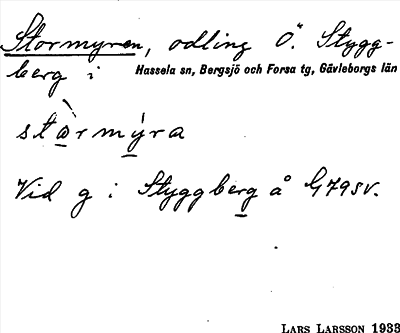 Stormyren, odling Ö. Stygg-
berg i Hassela sn, Bergsjö och Forsa tg, Gävleborgs län
stàrmýra
Vid g i Styggberg å G79SV.
LARS LARSSON 1933